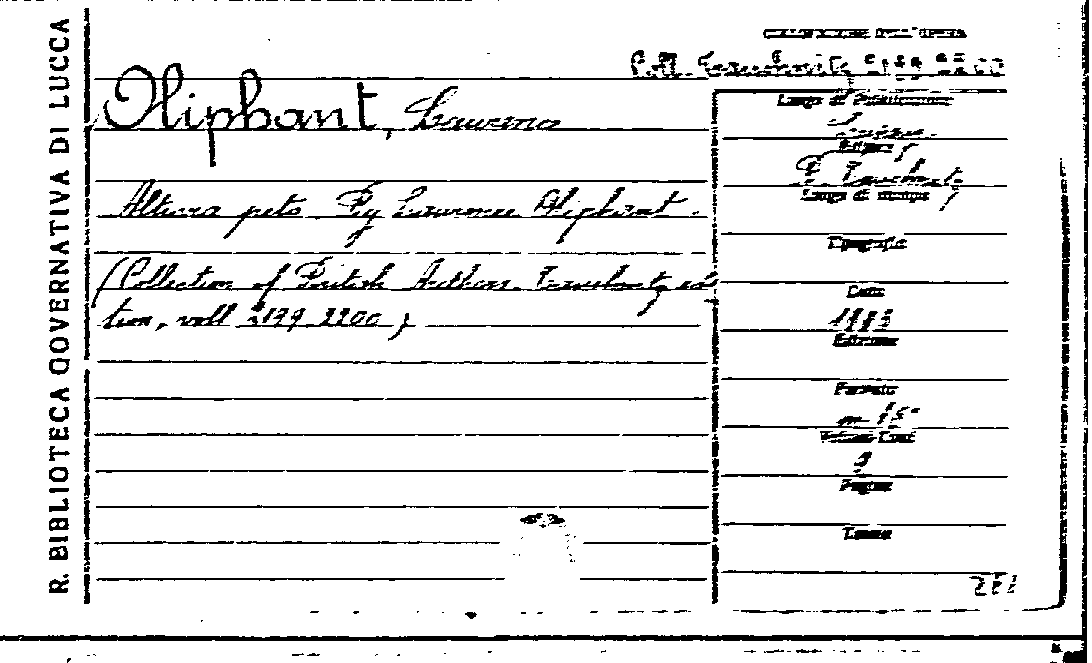 R. BIBLIOTECA GOVERNATIVA DI LUCCA
COLLOCAZIONE DELL'OPERA
Coll. Tauchnitz 2199 2200
Oliphant, Laurence
Altiora peto By Laurence Oliphant.
(Collection of British Authors Tauchnitz edi
tion, voll 2199 2200)
Luogo di Pubblicazione
Editore
B. Tauchnitz
Luogo di stampa
Tipografia
Data
1883
Edizione
Formato
in 16°
Volumi
2
Pagine
Tavole